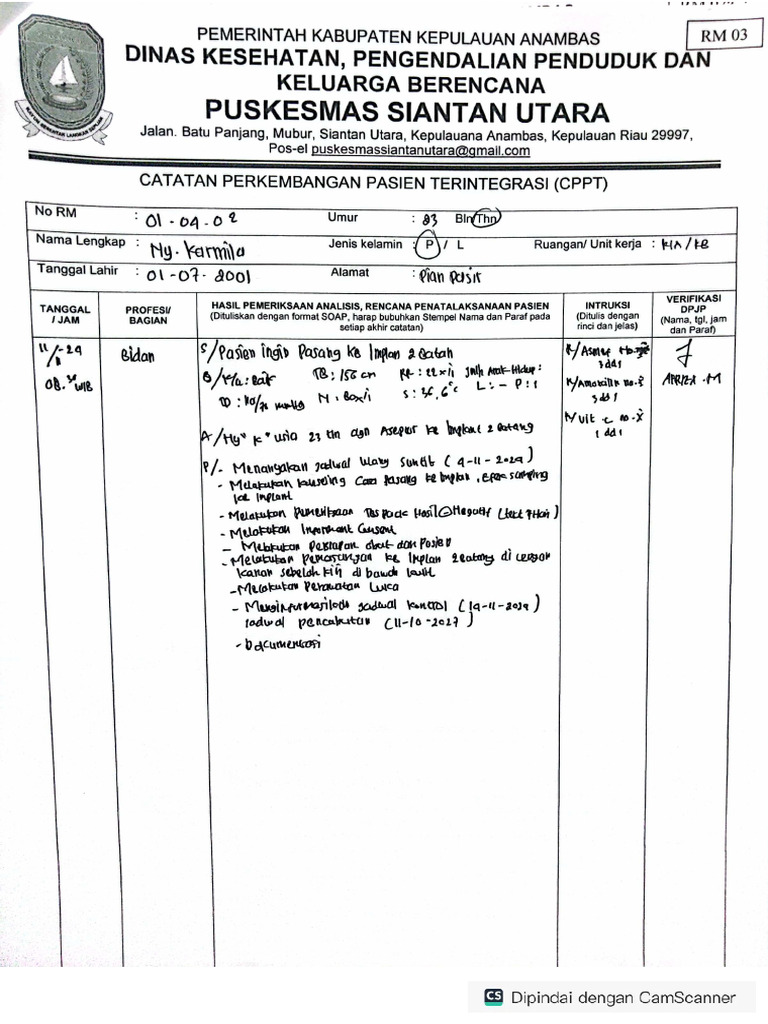 RM 03
PEMERINTAH KABUPATEN KEPULAUAN ANAMBAS
DINAS KESEHATAN, PENGENDALIAN PENDUDUK DAN
KELUARGA BERENCANA
PUSKESMAS SIANTAN UTARA
Jalan. Batu Panjang, Mubur, Siantan Utara, Kepulauana Anambas, Kepulauan Riau 29997,
Pos-el puskesmassiantanutara@gmail.com
CATATAN PERKEMBANGAN PASIEN TERINTEGRASI (CPPT)
No RM : 01-04-02 Umur : 23 Bln/Thn
Nama Lengkap : Ny. Karmila Jenis kelamin : P / L Ruangan/ Unit kerja : KIA/KB
Tanggal Lahir : 01-07-2001 Alamat : Pian Pasir
TANGGAL / JAM
PROFESI/ BAGIAN
HASIL PEMERIKSAAN ANALISIS, RENCANA PENATALAKSANAAN PASIEN
(Dituliskan dengan format SOAP, harap bubuhkan Stempel Nama dan Paraf pada
setiap akhir catatan)
INTRUKSI
(Ditulis dengan
rinci dan jelas)
VERIFIKASI
DPJP
(Nama, tgl, jam
dan Paraf)
08.30 WIB
Bidan
S/ Pasien ingin Pasang KB Implan 2 Batang
O/ K/u : Baik TB : 156 cm RR : 22x/i Jmlh Anak Hidup :
N : 80x/i S : 36,6°c L : - P : 1
A/ Ny" K" usia 23 thn dgn Aseptor KB Implant 2 Batang
P/ - Menanyakan Jadwal Ulang Suntik
- Melakukan Konseling Cara Pasang KB Implan, Efek samping
KB Implant
- Melakukan Pemeriksaan Tes Pack Hasil (-) Negatif
- Melakukan Informant Consent
- Melakukan Persiapan obat dan Pasien
- Melakukan Pemasangan KB Implan 2 Batang di Lengan
Kanan sebelah kiri di bawah kulit
- Melakukan Perawatan Luka
- Menginformasikan Jadwal kontrol
Jadwal Pencabutan (11-10-2027)
- Documentasi
R/ Asmef
3 dd 1
R/ Amoxicilin no. X
3 dd 1
R/ Vit C no. X
1 dd 1
CS Dipindai dengan CamScanner